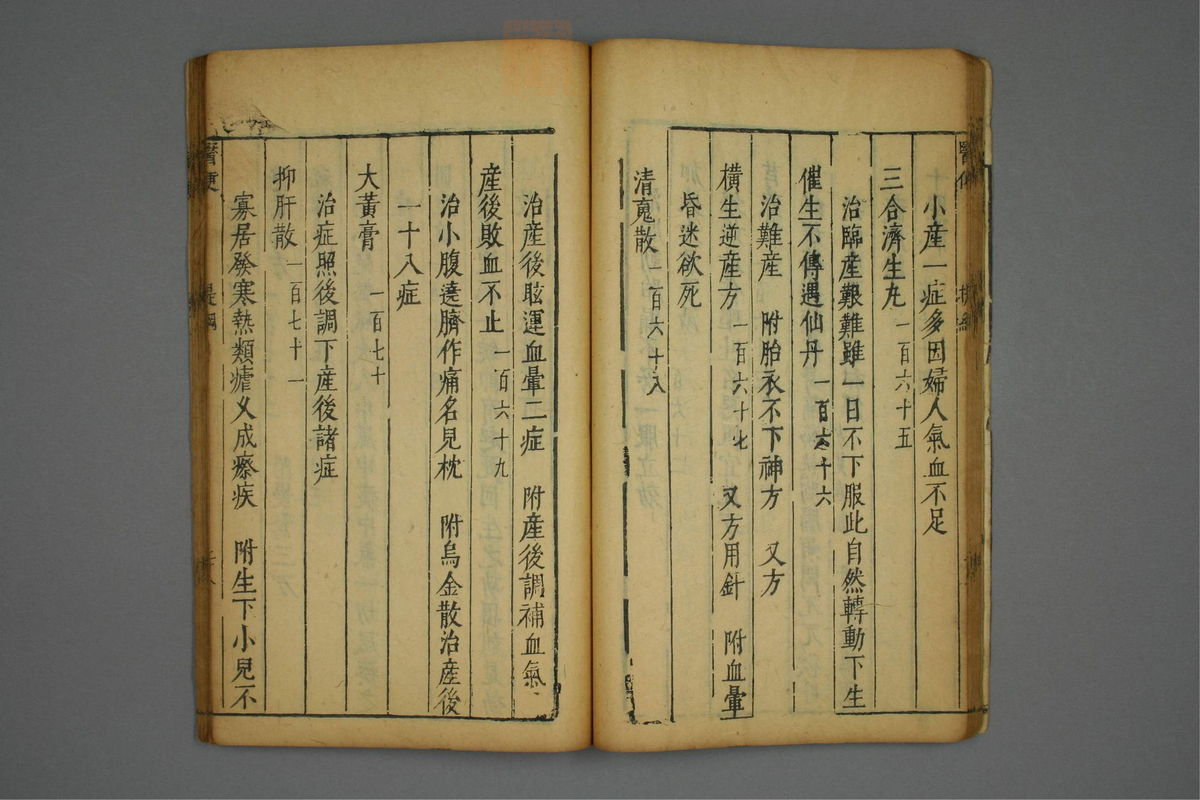 小産一症多因婦人氣血不足
三合濟生丸 一百六十五
治臨産艱難雖一日不下服此自然轉動下生
催生不傳遇仙丹 一百六十六
治難産 附胎衣不下神方 又方
橫生逆産方 一百六十七 又方用針 附血暈
昏迷欲死
清䰟散 一百六十八
治産後眩運血暈二症 附産後調補血氣
産後敗血不止 一百六十九
治小腹遶臍作痛名見枕 附烏金散治産後
一十八症
大黃膏 一百七十
治症照後調下産後諸症
抑肝散 一百七十一
寡居發寒熱類瘧又成瘵疾 附生下小兒不
醫便 提綱